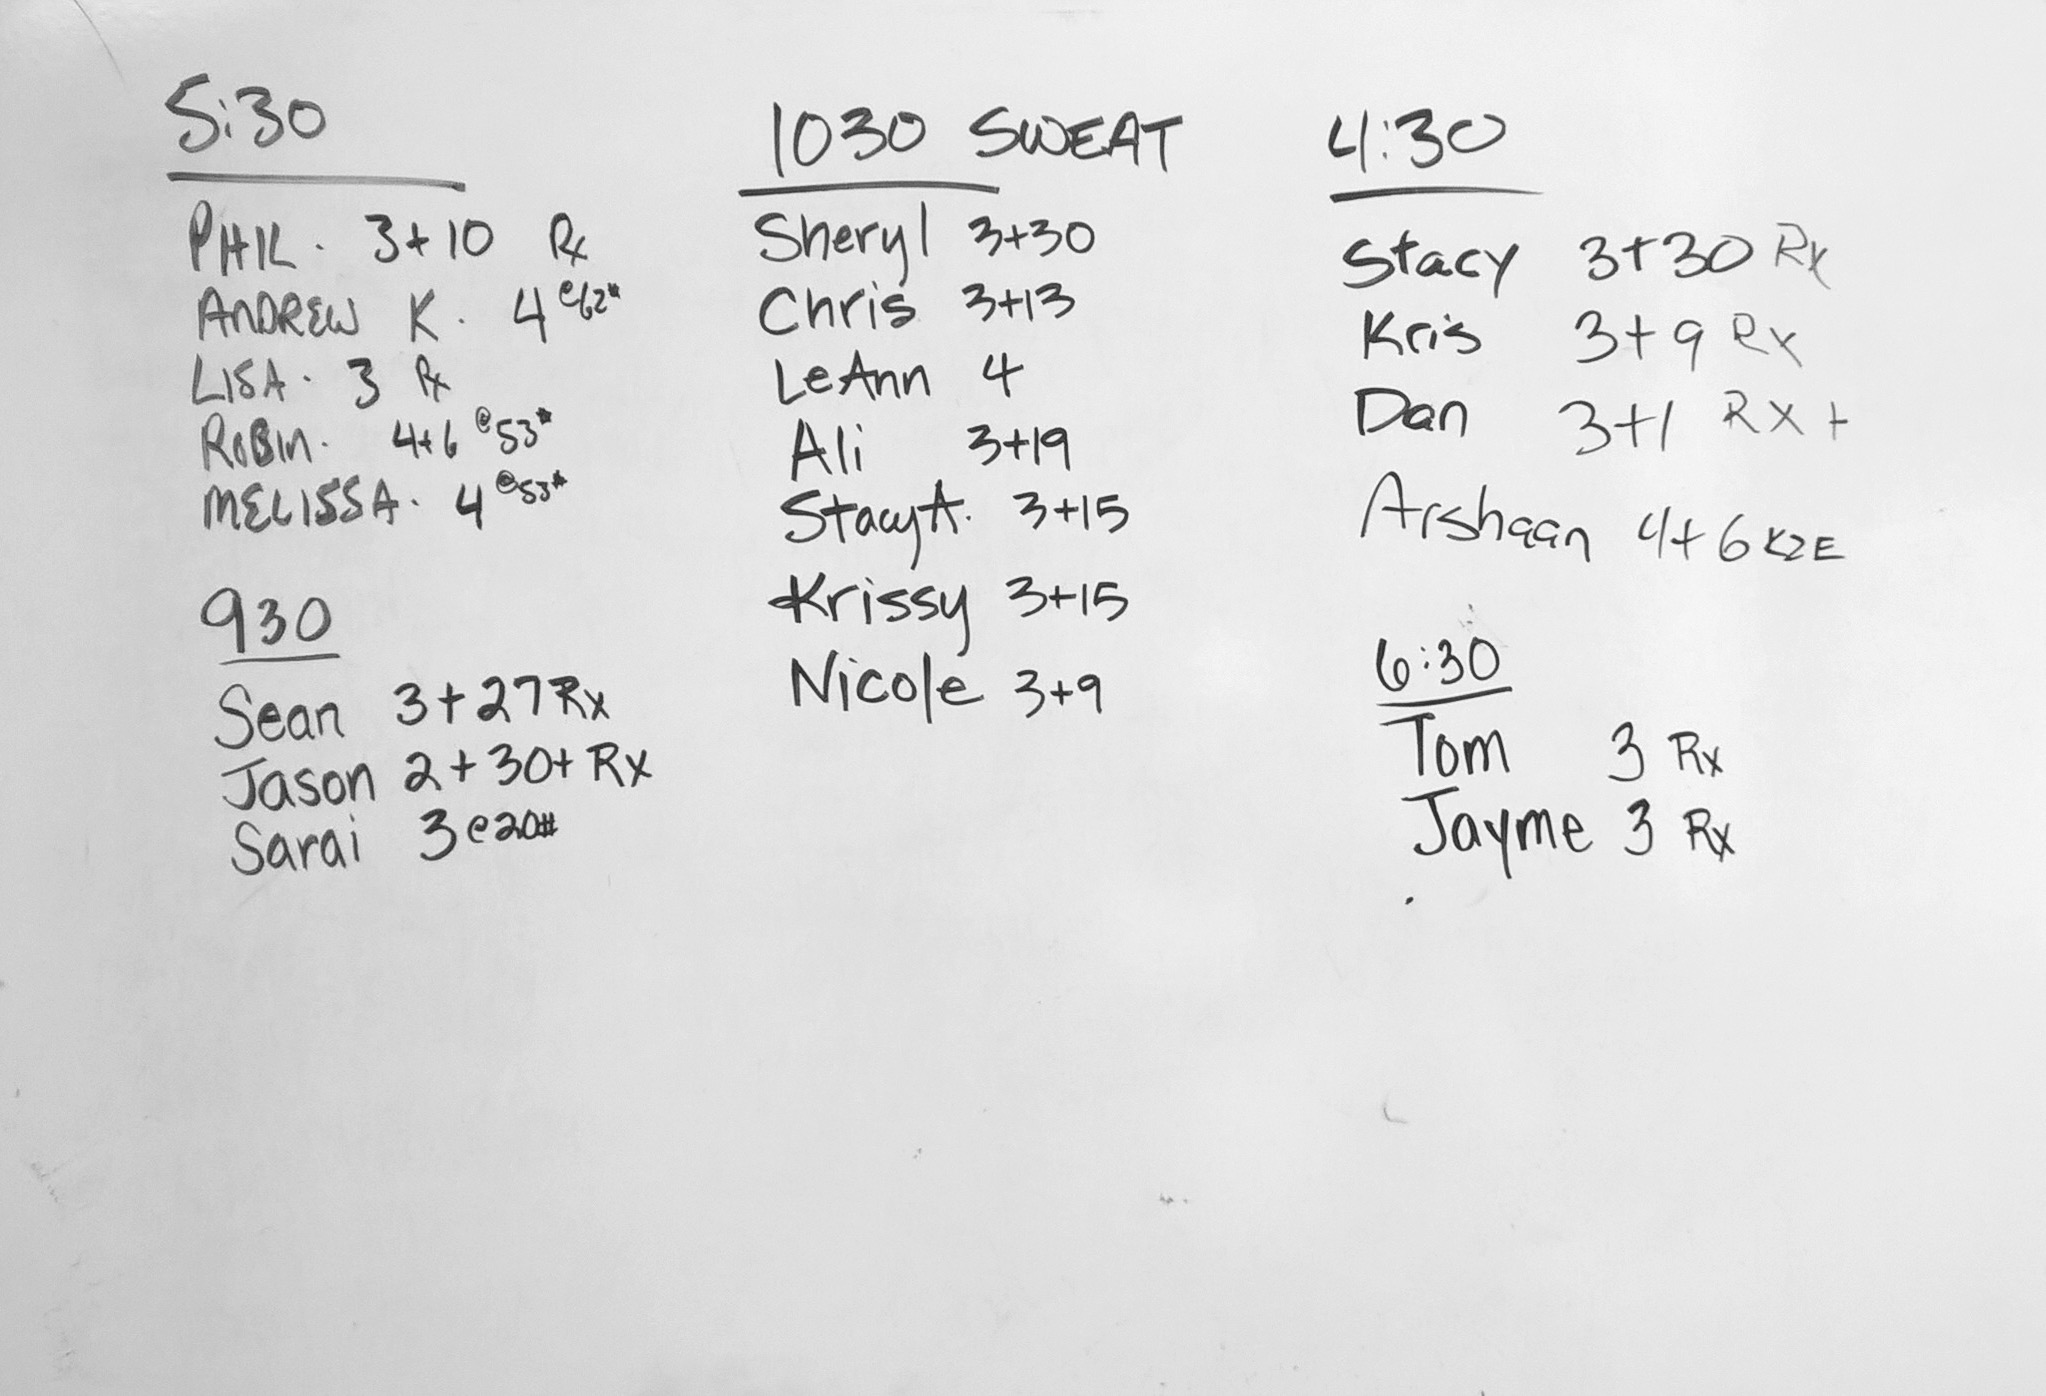 5:30
PHIL. 3+10 Rx
ANDREW K. 4 @62#
LISA. 3 Rx
ROBIN. 4+6 @53#
MELISSA. 4 @53#
930
Sean 3+27 Rx
Jason 2+30+ Rx
Sarai 3 @20#
1030 SWEAT
Sheryl 3+30
Chris 3+13
LeAnn 4
Ali 3+19
Stacy A. 3+15
Krissy 3+15
Nicole 3+9
4:30
Stacy 3+30 Rx
Kris 3+9 Rx
Dan 3+1 RX+
Arshaan 4+6 K2E
6:30
Tom 3 Rx
Jayme 3 Rx